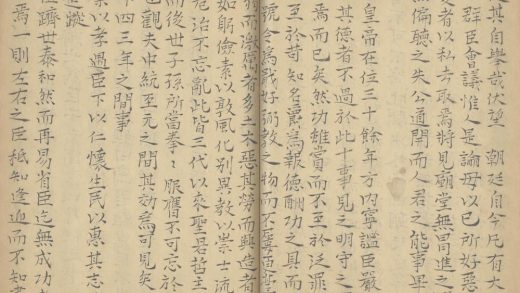 其自舉哉伏望　朝廷自今凡有大
群臣會議惟人是論毋以已所好惡
者以私取焉將見廟堂無冒進之
無偏聽之失公道開而人君之能事畢
皇帝在位三十餘年方內寧謐臣嚴
其德者不過於此十事見之明守之
焉而已矣然功雖賞而不至於泛罪
至於苛知名爵爲報德酬功之具而
號令爲戢奸弼教之物而不
而激儒者多土木惡其勞而興造者
如躬儉素以敦風化別異教以崇士流
危治不忘亂此皆三代以來聖君哲王
而後世子孫所當拳〻服膺不可忘於
觀夫中統至元之間其效焉可見矣
下四三年之間事
以孝遇臣下以仁懷生民以惠其志
蹤
躋世泰和然而再易省臣迄無成功
焉一則左右之臣秪知逢迎而不知